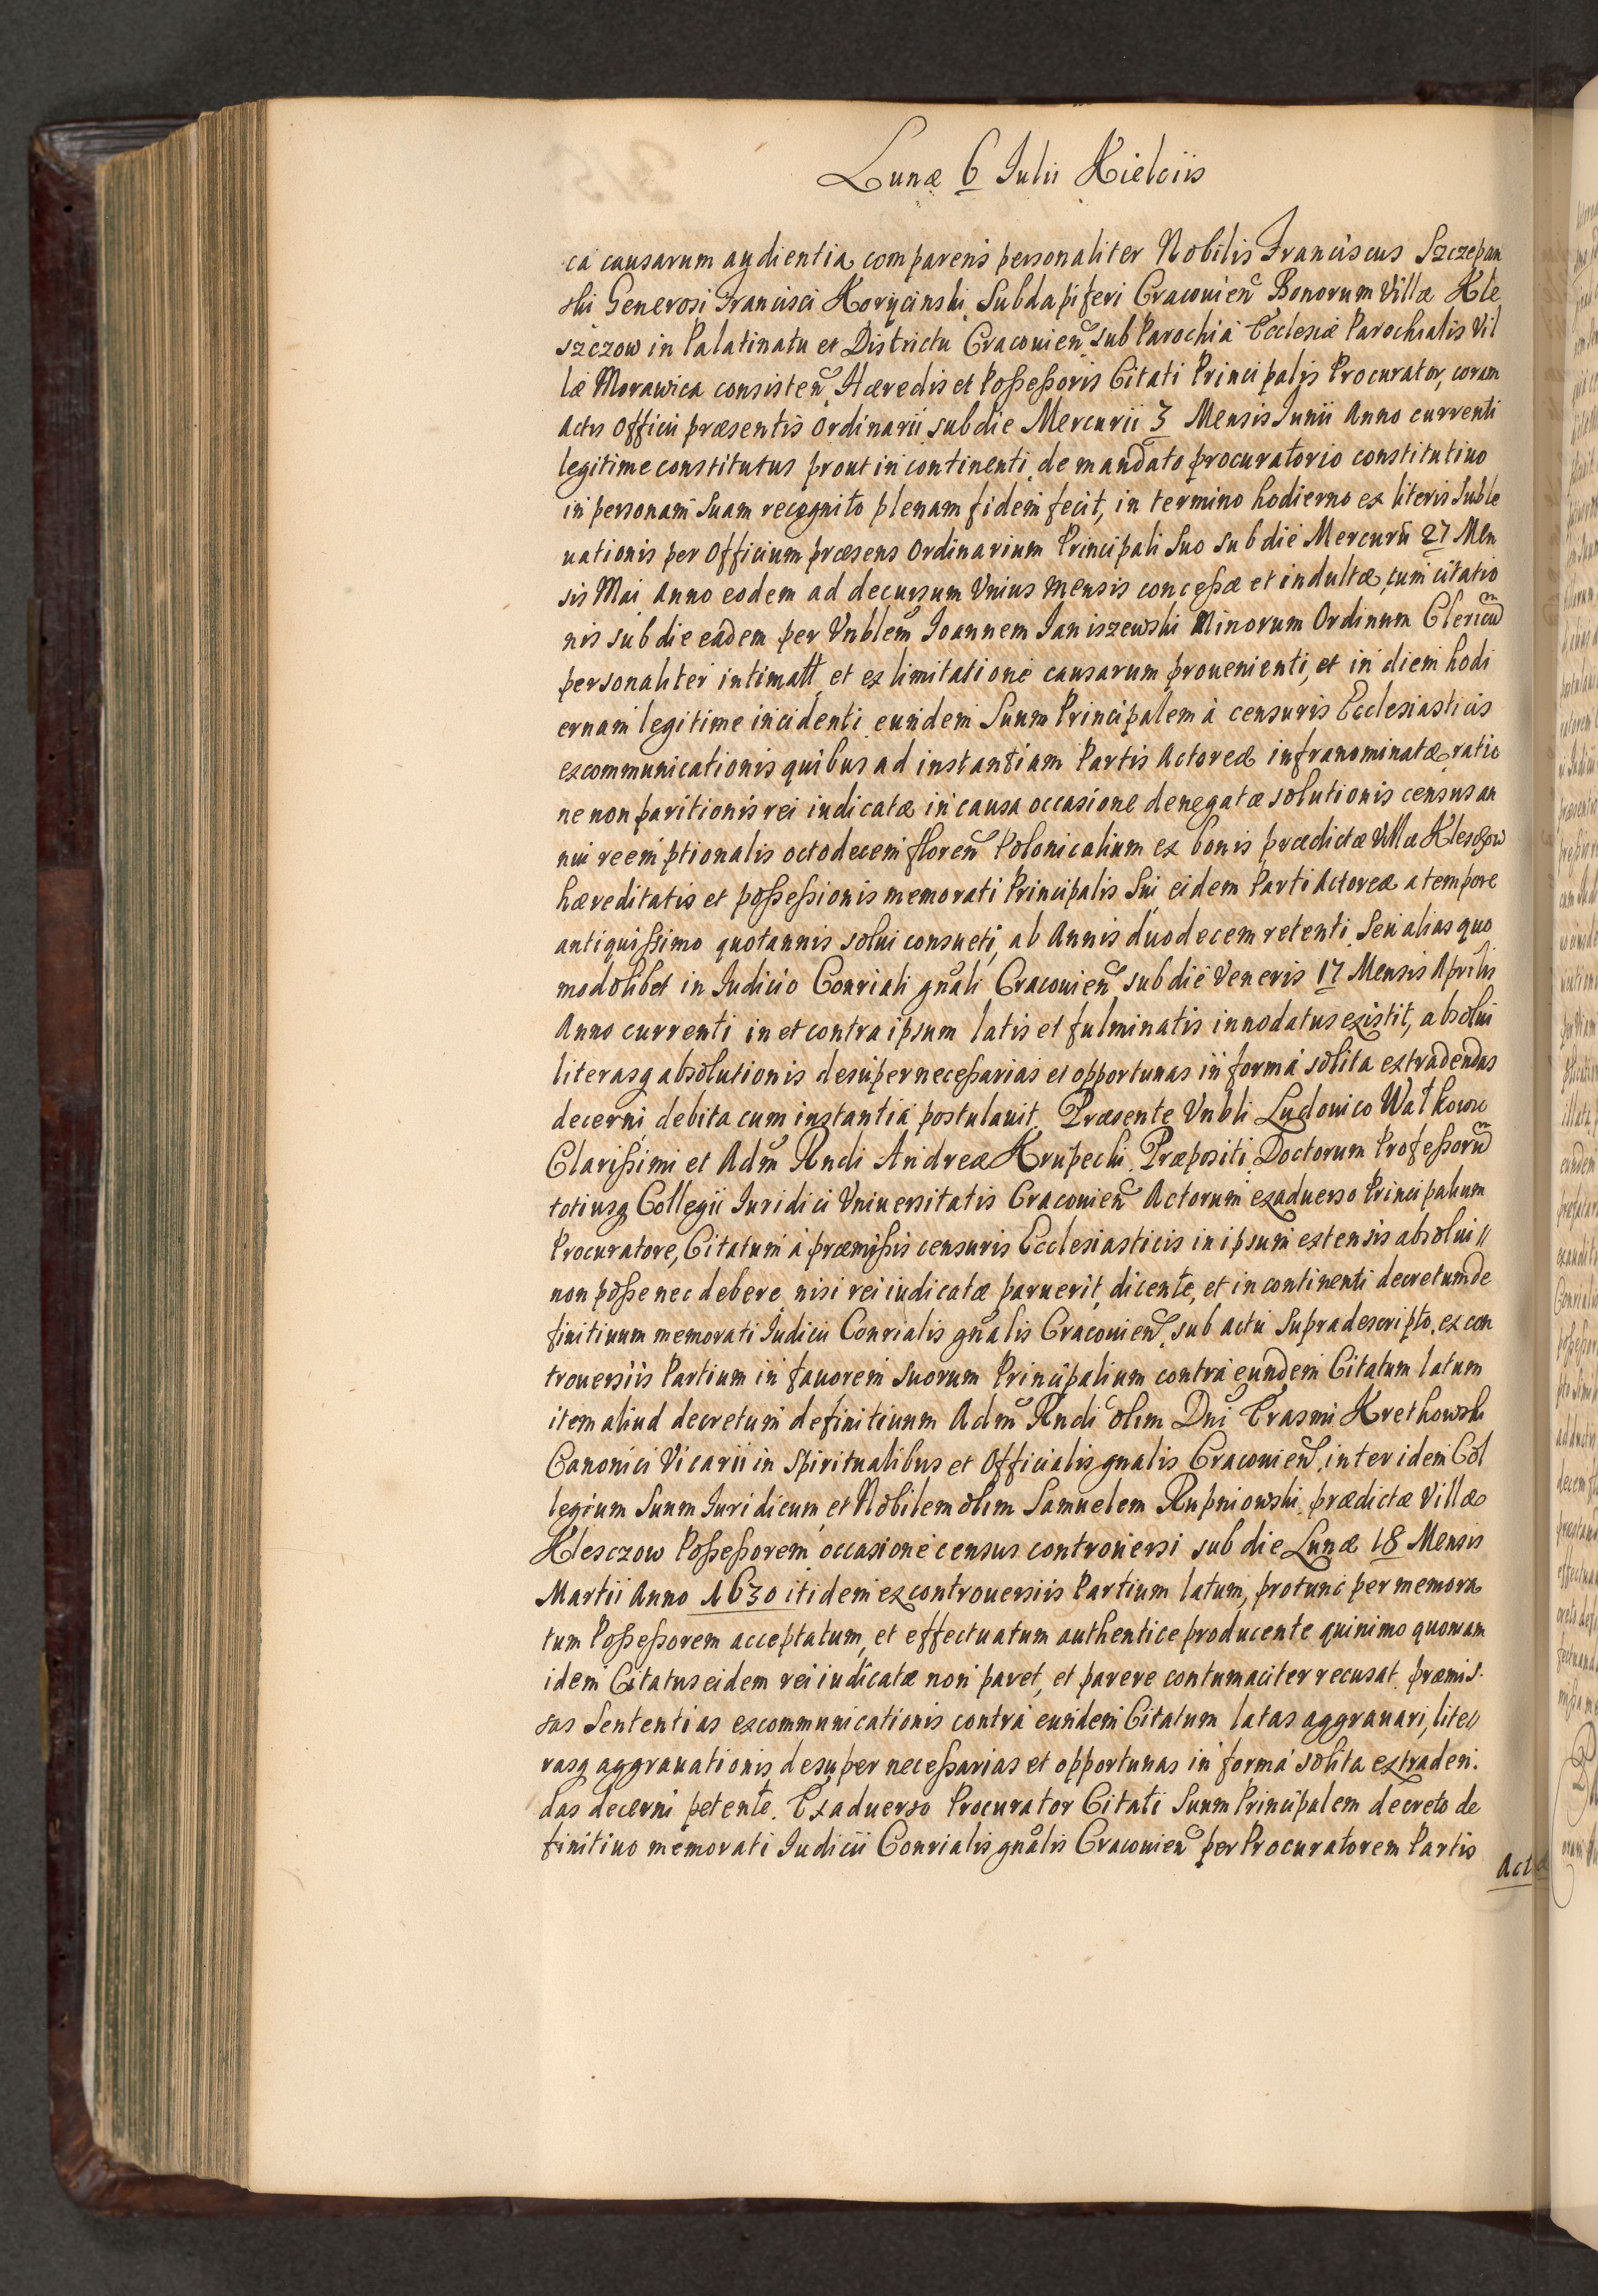 Lunæ 6 Iulii Kielciis
ca causarum audientia comparens personaliter Nobilis Franciscus Szczepan
ski Generosi Francisci Korycinski Subdapiferi Cracouien̄ Bonorum Villæ Kle
szczow in Palatinatu et Districtu Cracouien̄ sub Parochia Ecclesiæ Parochialis Vil
læ Morawica consisten̄ Hæredis et Possessoris Citati Principalis Procurator, coram
Actis Officii præsentis Ordinarii sub die Mercurii 3 Mensis Iunii Anno currenti
legitime constitutus prout in continenti de mandato procuratorio constitutiuo
in personam Suam recognito plenam fidem fecit, in termino hodierno ex literis Suble
uationis per Officium præsens Ordinarium Principali Suo sub die Mercurii 27 Men
sis Mai Anno eodem ad decursum Vnius mensis concessæ et indultæ, cum citatio
nis sub die eadem per Vnblem̄ Ioannem Ianiszewski Minorum Ordinum Clericum̄
personaliter intimatt et ex limitatione causarum prouenienti, et in diem hodi
ernam legitime incidenti eundem Suum Principalem à censuris Ecclesiasticis
excommunicationis quibus ad instantiam Partis Actoreæ infranominatæ ratio
ne non paritionis rei iudicatæ in causa occasione denegatæ solutionis census an
nui reemptionalis octodecem floren̄ Polonicalium ex bonis prædictæ Villæ Klesczow
hæreditatis et possessionis memorati Principalis Sui eidem Parti Actoreæ a tempore
antiquissimo quotannis solui consueti, ab Annis duodecem retenti Seu alias quo
modolibet in Iudicio Conriali gnāli Cracouien̄ sub die Veneris 17 Mensis Aprilis
Anno currenti in et contra ipsum latis et fulminatis innodatus existit, absolui
literasq absolutionis desuper necessarias et opportunas in forma solita extradendas
decerni debita cum instantia postulauit. Præsente Vnbli Ludouico Watkowic
Clarissimi et Adm̄ Rndi Andreæ Krupecki Præpositi Doctorum Professorum̄
totiusq Collegii Iuridici Vniuersitatis Cracouien̄ Actorum exaduerso Principalium
Procuratore, Citatum à præmissis censuris Ecclesiasticis in ipsum extensis absolui //
non posse nec debere, nisi rei iudicatæ paruerit dicente, et in continenti decretum de
finitiuum memorati Iudicii Conrialis gnālis Cracouien̄ sub actu Supradescripto, ex con
trouersiis Partium in fauorem suorum Principalium contra eundem Citatum latum
item aliud decretum definitiuum Adm̄ Rndi olim Dn̄i Erasmi Kretkowski
Canonici Vicarii in Spiritualibus et Officialis gnalis Cracouien̄, inter idem Col
legium Suum Iuridicum et Nobilem olim Samuelem Rupniowski prædictæ Villæ
Klesczow Possessorem occasione census controuersi sub die Lunæ 18 Mensis
Martii Anno 1630 itidem ex controuersiis Partium latum, protunc per memora
tum Possessorem acceptatum, et effectuatum authentice producente quinimo quoniam
idem Citatus eidem rei iudicatæ non paret, et parere contumaciter recusat præmis
sas Sententias excommunicationis contra eundem Citatum latas aggrauari, lite//
rasq aggrauationis desuper necessarias et opportunas in forma solita extraden.
das decerni petente. Exaduerso Procurator Citati Suum Principalem decreto de
finitiuo memorati Iudicii Conrialis gnālis Cracouien̄ per Procuratorem Partis